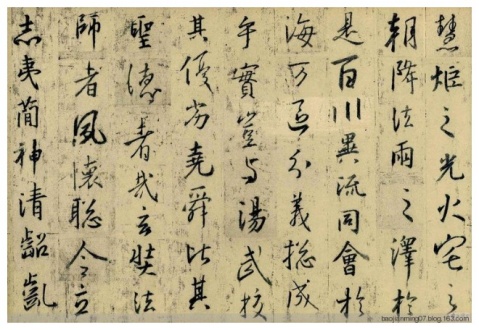 慧炬之光火宅之
朝降法雨之澤於
是百川異流同會於
海万區分義揔成
乎實豈与湯武校
其優劣堯舜比其
聖德者哉玄奘法
師者夙懷聡令立
志夷簡神清齠齓
baojianming07.blog.163.com